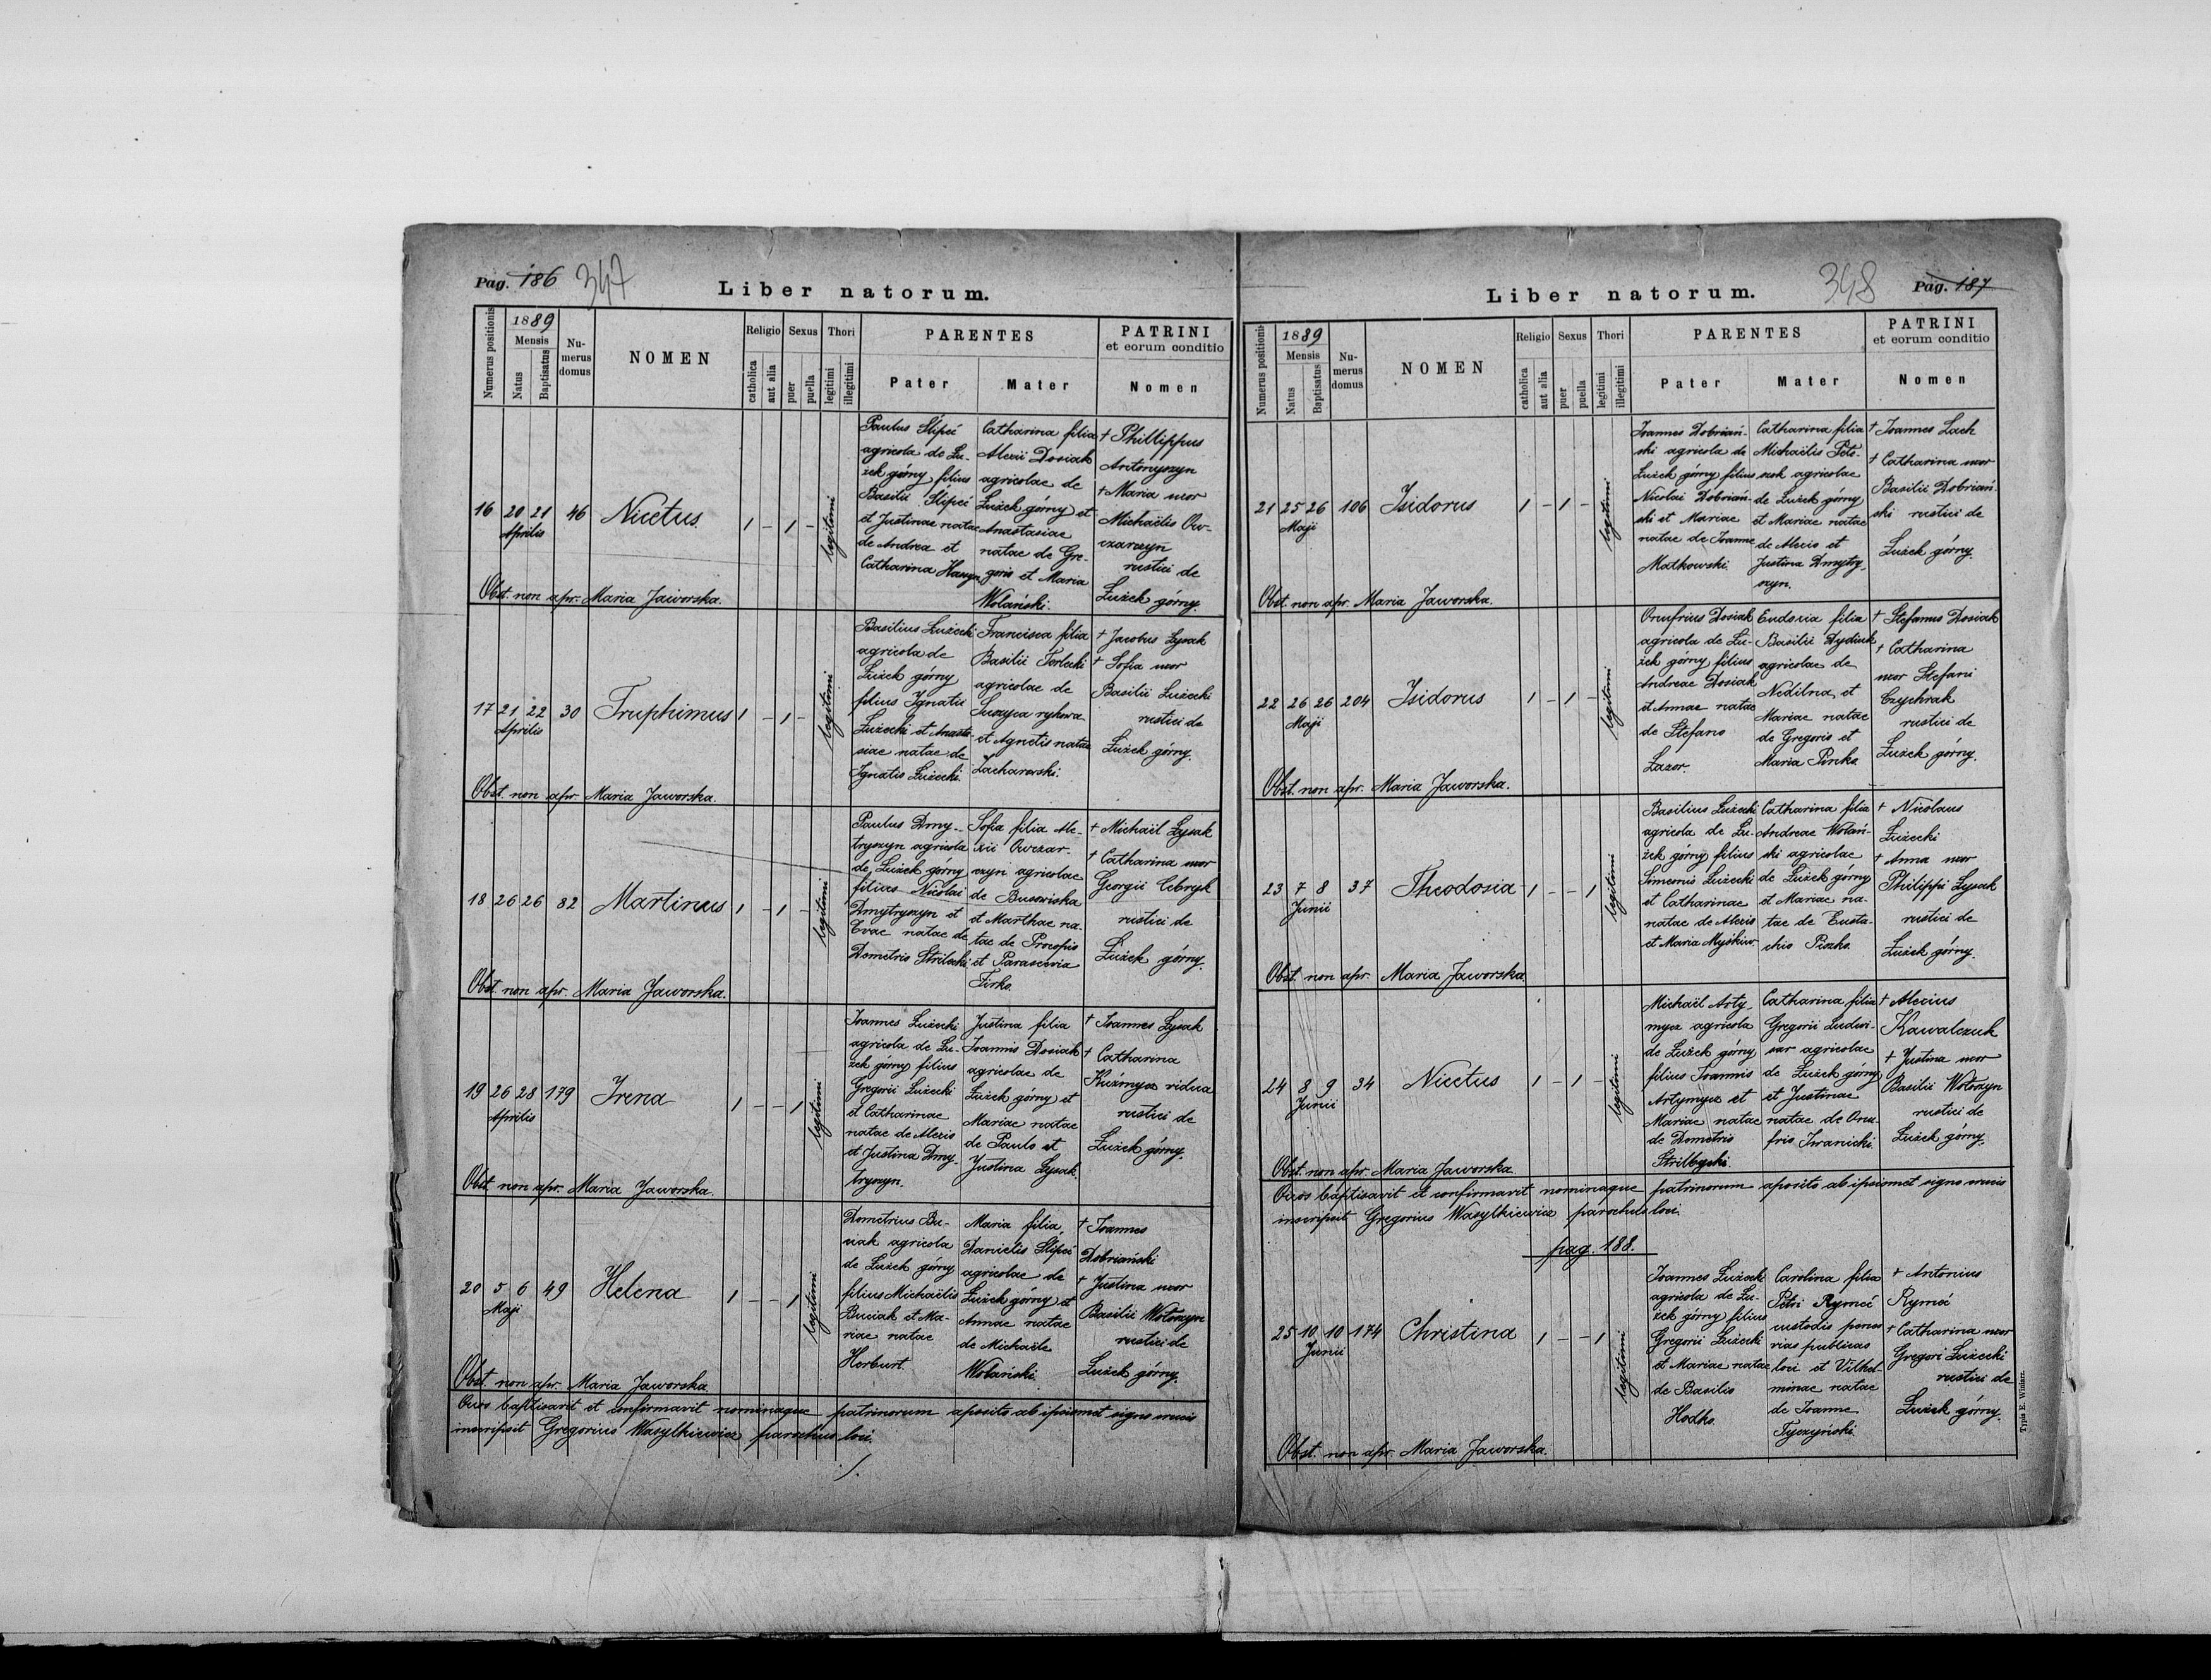 Pag. 186 347
Liber natorum.
Numerus positionis
1889
Mensis
Natus
Baptisatus
Nu-
merus
domus
NOMEN
Religio
catholica
aut alia
Sexus
puer
puella
Thori
legitimi
illegitimi
PARENTES
Pater
Mater
PATRINI
et eorum conditio
Nomen
16
20 21
Aprilis
46
Nicetus
1 - 1 -
legitimi
Paulus Slipeć
agricola de Łu-
żek górny filius
Basilii Slipeć
et Justinae natae
de Andrea et
Catharina
Catharina filia
Alexii Dosiak
agricolae de
Łużek górny et
Anastasiae
natae de Gre-
gorio et Maria
Wolański.
† Phillippus
Antonyszyn
† Maria uxor
Michaëlis Ow-
czarczyn
rustici de
Łużek górny.
Obst. non apr. Maria Jaworska.
17
21 22
Aprilis
30
Truphimus
1 - 1 -
legitimi
Basilius Łużecki
agricola de
Łużek górny
filius Ignatii
Łużecki et Anasta-
siae natae de
Ignatio Łużecki.
Francisca filia
Basilii Torlecki
agricolae de
Suszyca rykowa
et Agnetis natae
Zacharowski.
† Jacobus Łysak
† Sofia uxor
Basilii Łużecki
rustici de
Łużek górny.
Obst. non apr. Maria Jaworska.
18
26 26
82
Martinus
1 - 1 -
legitimi
Paulus Dmy-
tryszyn agricola
de Łużek górny
filius Nicolai
Dmytryszyn et
Evae natae de
Demetrio Strilecki
Sofia filia Ale-
xii Owczar-
czyn agricolae
de Busowiska
et Marthae na-
tae de Procopio
et Parascevia
Firko.
† Michaël Łysak
† Catharina uxor
Georgii Cebryk
rustici de
Łużek górny.
Obst. non apr. Maria Jaworska.
19
26 28
Aprilis
179
Irena
1 - - 1
legitimi
Ioannes Łużecki
agricola de Łu-
żek górny filius
Gregorii Łużecki
et Catharinae
natae de Alexio
et Justina Dmy-
tryszyn.
Justina filia
Ioannis Dosiak
agricolae de
Łużek górny et
Mariae natae
de Paulo et
Justina Łysak.
† Ioannes Łysak
† Catharina
Kuźmycz vidua
rustici de
Łużek górny.
Obst. non apr. Maria Jaworska.
20
5 6
Maji
49
Helena
1 - - 1
legitimi
Demetrius Bu-
ciak agricola
de Łużek górny
filius Michaëlis
Buciak et Ma-
riae natae
Horburt.
Maria filia
Danielis Slipeć
agricolae de
Łużek górny et
Annae natae
de Michaële
Wolański.
† Ioannes
Dobriański
† Justina uxor
Basilii Wołoszyn
rustici de
Łużek górny.
Obst. non apr. Maria Jaworska.
Quos baptisavit et confirmavit nominaque patrinorum aposito ab ipsismet signo crucis
inscripsit Gregorius Wasylkiewicz parochus loci.
./.
Liber natorum.
348 Pag. 187
Numerus positionis
1889
Mensis
Natus
Baptisatus
Nu-
merus
domus
NOMEN
Religio
catholica
aut alia
Sexus
puer
puella
Thori
legitimi
illegitimi
PARENTES
Pater
Mater
PATRINI
et eorum conditio
Nomen
21
25 26
Maji
106
Isidorus
1 - 1 -
legitimi
Ioannes Dobriań-
ski agricola de
Łużek górny filius
Nicolai Dobriań-
ski et Mariae
natae de Ioanne
Matkowski.
Catharina filia
Michaëlis
agricolae
de Łużek górny
et Mariae natae
de Alexio et
Justina Dmytry-
szyn.
† Ioannes Lach
† Catharina uxor
Basilii Dobriań-
ski rustici de
Łużek górny.
Obst. non apr. Maria Jaworska.
22
26 26
Maji
204
Isidorus
1 - 1 -
legitimi
Onufrius Dosiak
agricola de Łu-
żek górny filius
Andreae Dosiak
et Annae natae
de Stefano
Lazor.
Eudoxia filia
Basilii Dydiuk
agricolae de
Nedilna et
Mariae natae
de Gregorio et
Maria Pinko.
† Stefanus Dosiak
† Catharina
uxor Stefani
Czychrak
rustici de
Łużek górny.
Obst. non apr. Maria Jaworska.
23
7 8
Junii
37
Theodosia
1 - - 1
legitimi
Basilius Łużecki
agricola de Łu-
żek górny filius
Simeonis Łużecki
et Catharinae
natae de Alexio
et Maria Myśkiw.
Catharina filia
Andreae Wolań-
ski agricolae
de Łużek górny
et Mariae na-
tae de Eusta-
chio Piszko.
† Nicolaus
Łużecki
† Anna uxor
Philippi Łysak
rustici de
Łużek górny.
Obst. non apr. Maria Jaworska.
24
8 9
Junii
34
Nicetus
1 - 1 -
legitimi
Michaël Arty-
mycz agricola
de Łużek górny
filius Ioannis
Artymycz et
Mariae natae
de Demetrio
Strilbycki.
Catharina filia
Gregorii Ludwi-
agricolae
de Łużek górny
et Justinae
natae de Onu-
frio Iwanicki.
† Alexius
Kawalczuk
† Justina uxor
Basilii Wołoszyn
rustici de
Łużek górny.
Obst. non apr. Maria Jaworska.
Quos baptisavit et confirmavit nominaque patrinorum aposito ab ipsismet signo crucis
inscripsit Gregorius Wasylkiewicz parochus loci.
pag. 188.
25
10 10
Junii
174
Christina
1 - - 1
legitimi
Ioannes Łużecki
agricola de Łu-
żek górny filius
Gregorii Łużecki
et Mariae natae
de Basilio
Hodko.
Carolina filia
Petri Rymeć
custodis penes
vias publicas
loci et Vilhel-
minae natae
de Ioanne
Tyczyński.
† Antonius
Rymeć
† Catharina uxor
Gregori Łużecki
rustici de
Łużek górny.
Obst. non apr. Maria Jaworska.
Typis E. Winiarz.